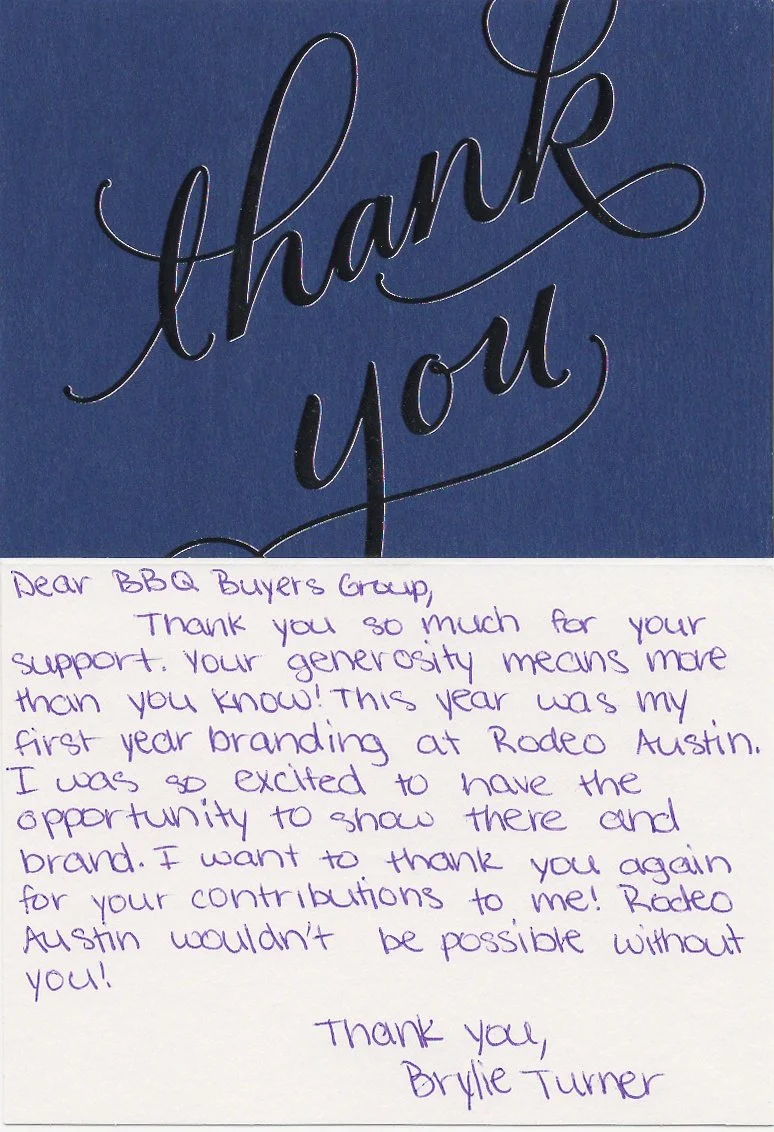 thank
you
Dear BBQ Buyers Group,
Thank you so much for your
support. Your generosity means more
than you know! This year was my
first year branding at Rodeo Austin.
I was so excited to have the
opportunity to show there and
brand. I want to thank you again
for your contributions to me! Rodeo
Austin wouldn't be possible without
you!
Thank you,
Brylie Turner